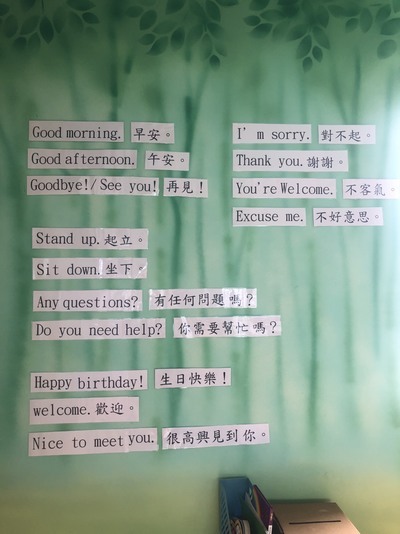 Good morning. 早安。
Good afternoon. 午安。
Goodbye!/See you! 再見！
I'm sorry. 對不起。
Thank you. 謝謝。
You're Welcome. 不客氣。
Excuse me. 不好意思。
Stand up. 起立。
Sit down. 坐下。
Any questions? 有任何問題嗎？
Do you need help? 你需要幫忙嗎？
Happy birthday! 生日快樂！
welcome. 歡迎。
Nice to meet you. 很高興見到你。